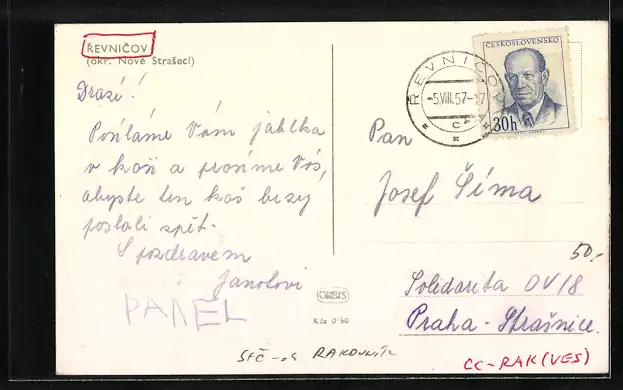 ŘEVNIČOV
(okr. Nové Strašecí)
Drazí!
Posíláme Vám jablka
v koši a prosíme Vás,
abyste ten koš brzy
poslali zpět.
S pozdravem
Janotovi
PAVEL
ORBIS
Kčs 0·50
ČESKOSLOVENSKO
30h
ŘEVNIČOV
-5.VIII.57-17
c
Pan
Josef Šíma
50,-
Solidarita OV18
Praha - Strašnice.
RAKOVNÍK
CC-RAK(VES)